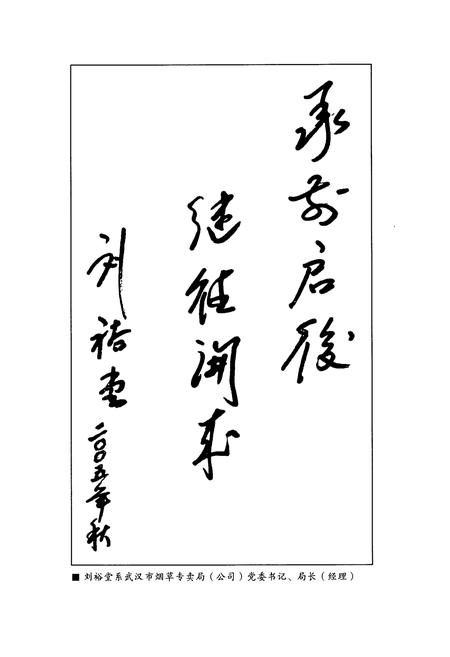 承前启後
继往开来
刘裕堂
二〇〇五年秋
■ 刘裕堂系武汉市烟草专卖局(公司)党委书记、局长(经理)